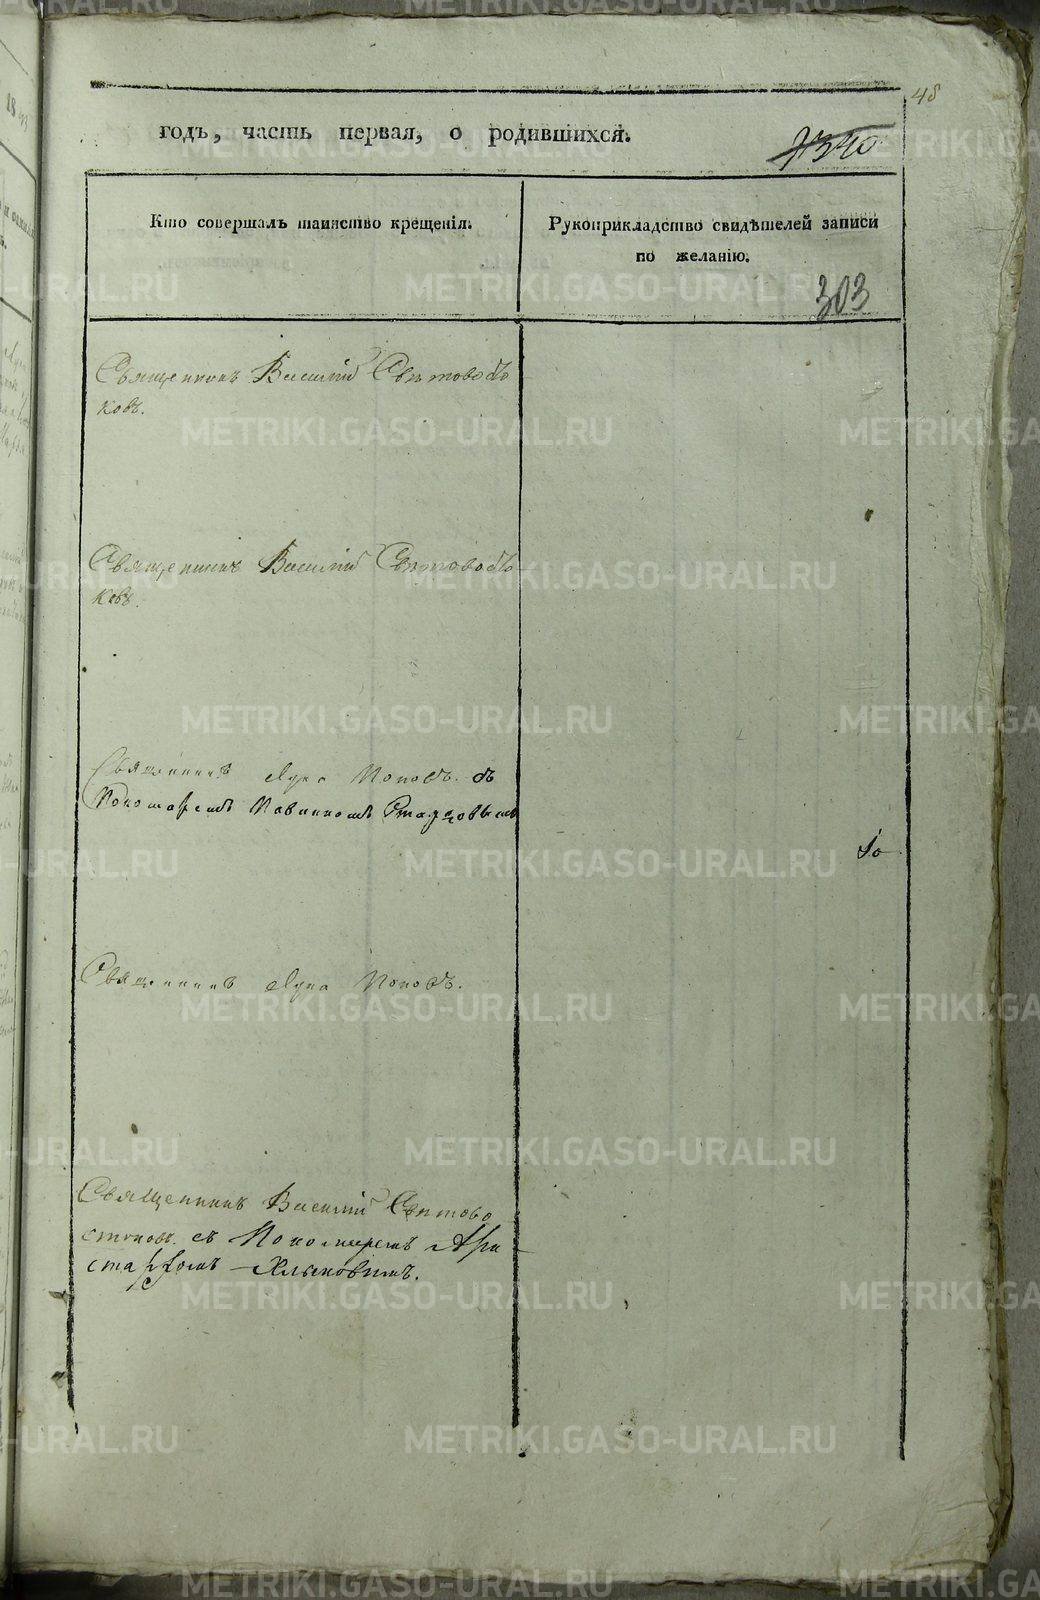 48
годъ, часть первая, о родившихся.
7340
Кто совершалъ таинство крещенія.
Рукоприкладство свидѣтелей записи
по желанію.
303
Священникъ Василій
ковъ.
Священникъ Василій
ковъ.
Священникъ Лука Поповъ съ
Пономаремъ Павлиномъ Старцовымъ
10
Священникъ Лука Поповъ.
Священникъ Василій
съ Пономаремъ Ари-
стархомъ Хлыновымъ.
METRIKI.GASO-URAL.RU